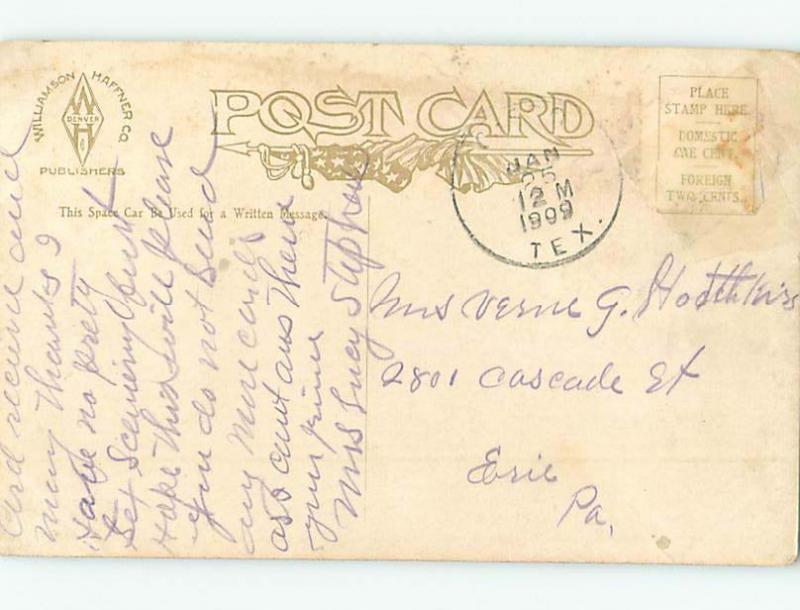 WILLIAMSON HAFFNER CO.
W DENVER H
PUBLISHERS
POST CARD
This Space Car Be Used for a Written Message.
PLACE
STAMP HERE
DOMESTIC
ONE CENT.
FOREIGN
TWO CENTS.
JAN
25
12 M
1909
TEX.
Card received and
many thanks I
Have no prety
Set Scenerny but
Hope this will please
you do not send
any more cards
as I cant ans them
your friend
Mrs Lucy
Mrs Verne G.
2801 Cascade St
Erie
Pa,